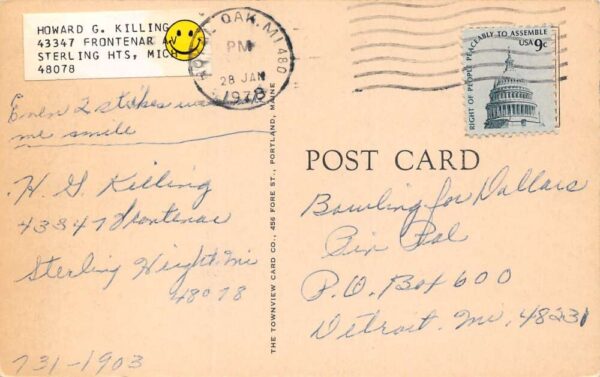 HOWARD G. KILLING
43347 FRONTENAR AV
STERLING HTS, MICH
48078
ROYAL OAK, MI 480
PM
28 JAN
1978
RIGHT OF PEOPLE PEACEABLY TO ASSEMBLE
USA 9c
Even 2 strikes
me smile
H. G. Killing
43347 Frontenac
Sterling Height Mi
48078
731-1903
THE TOWNVIEW CARD CO., 456 FORE ST., PORTLAND, MAINE
POST CARD
Bowling for Dollars
Pin Pal
P.O. Box 600
Detroit. Mi. 48231